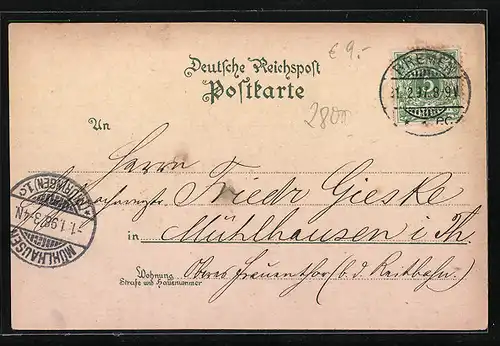 € 9.-
Deutsche Reichspost
Postkarte
2800
BREMEN
5
An
Herrn
Friedr Gieske
in Mühlhausen i. Th
Wohnung
Straße und Hausnummer
Oberes Frauenthor (b. d. Reitbahn.)
MÜHLHAUSEN
(THÜRINGEN) 1.
1.1.98. 3-4N